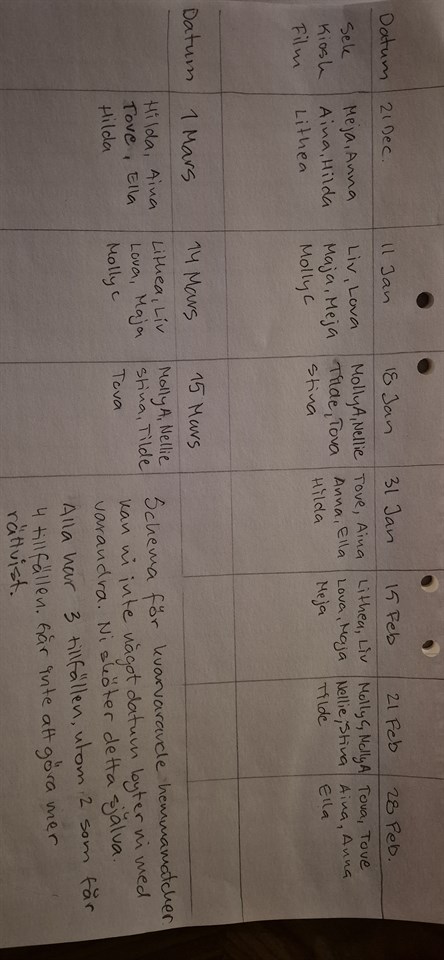 Datum 21 Dec. 11 Jan 18 Jan 31 Jan 15 Feb 21 Feb 28 Feb.
Sek Meja, Anna Liv, Lova MollyA, Nellie Tove, Aina Lithea, Liv MollyC, MollyA Tova, Tove
Kiosk Aina, Hilda Maja, Meja Tilde, Tova Anna, Ella Lova, Maja Nellie, Stina Aina, Anna
Film Lithea MollyC Stina Hilda Meja Tilde Ella
Datum 1 Mars 14 Mars 15 Mars
Hilda, Aina Lithea, Liv MollyA, Nellie
Tove, Ella Lova, Maja Stina, Tilde
Hilda MollyC Tova
Schema för kvarvarande hemmamatcher
kan ni inte något datum byter ni med
varandra. Ni sköter detta själva.
Alla har 3 tillfällen, utom 2 som får
4 tillfällen. Går inte att göra mer
rättvist.